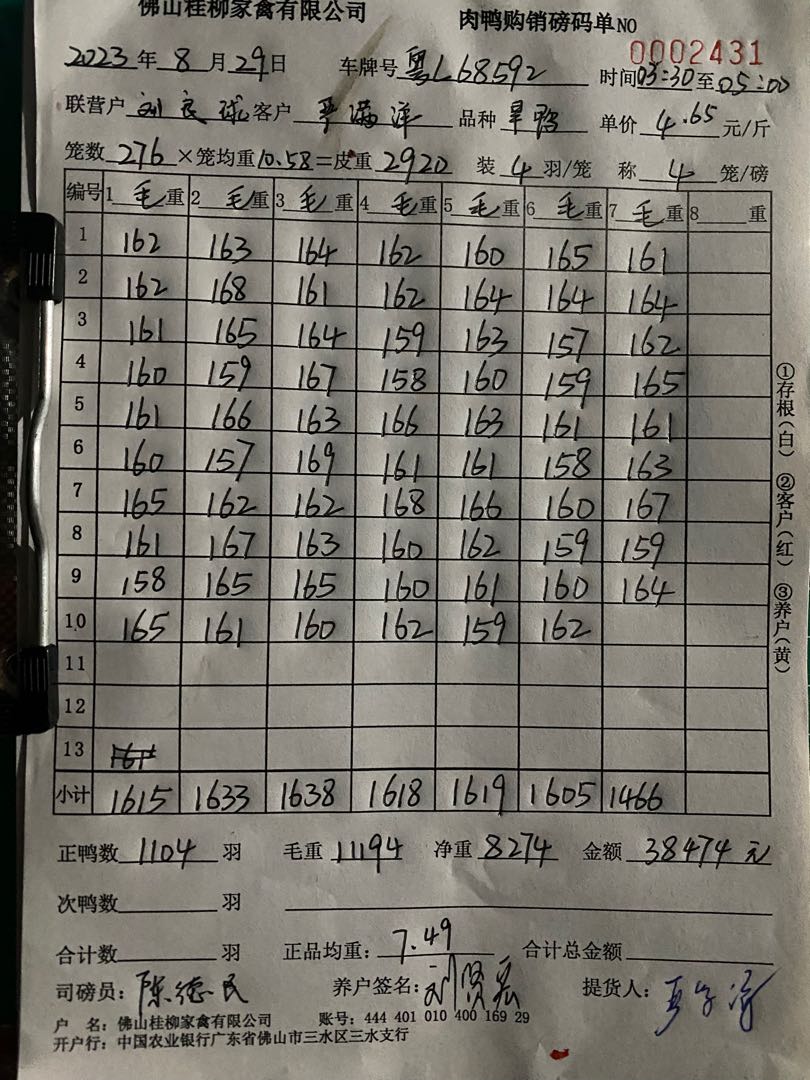 佛山桂柳家禽有限公司 肉鸭购销磅码单NO 0002431
2023年8月29日 车牌号 粤L68592 时间03:30至05:00
联营户 刘良球 客户 品种 旱鸭 单价 4.65 元/斤
笼数 276 ×笼均重10.58=皮重 2920 装 4 羽/笼 称 4 笼/磅
编号 1 毛 重 2 毛 重 3 毛 重 4 毛 重 5 毛 重 6 毛 重 7 毛 重 8 重
1 162 163 164 162 160 165 161
2 162 168 161 162 164 164 164
3 161 165 164 159 163 157 162
4 160 159 167 158 160 159 165
5 161 166 163 166 163 161 161
6 160 157 169 161 161 158 163
7 165 162 162 168 166 160 167
8 161 167 163 160 162 159 159
9 158 165 165 160 161 160 164
10 165 161 160 162 159 162
11
12
13
小计 1615 1633 1638 1618 1619 1605 1466
①存根(白) ②客户(红) ③养户(黄)
正鸭数 1104 羽 毛重 11194 净重 8274 金额 38474 元
次鸭数 羽
合计数 羽 正品均重: 7.49 合计总金额
司磅员: 陈德民 养户签名: 刘贤宏 提货人:
户 名: 佛山桂柳家禽有限公司 账号: 444 401 010 400 169 29
开户行: 中国农业银行广东省佛山市三水区三水支行